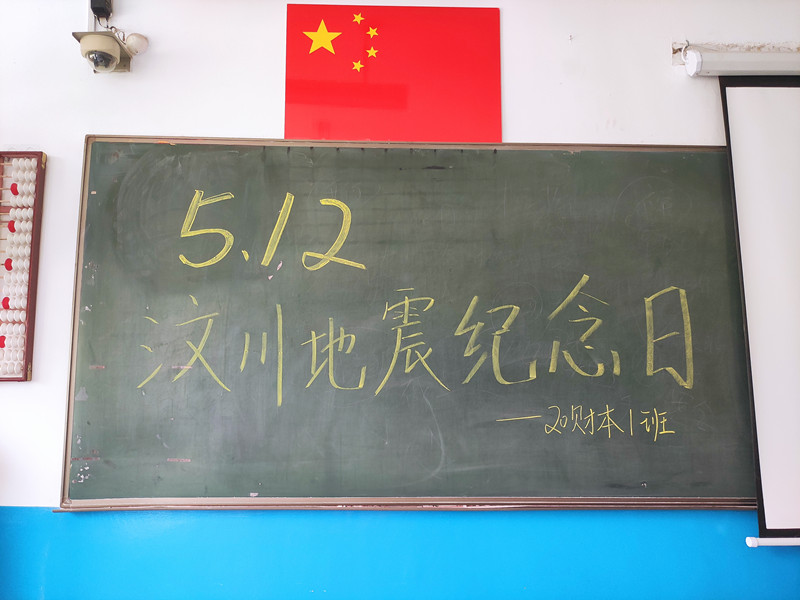 5.12
汶川地震纪念日
—20财本1班